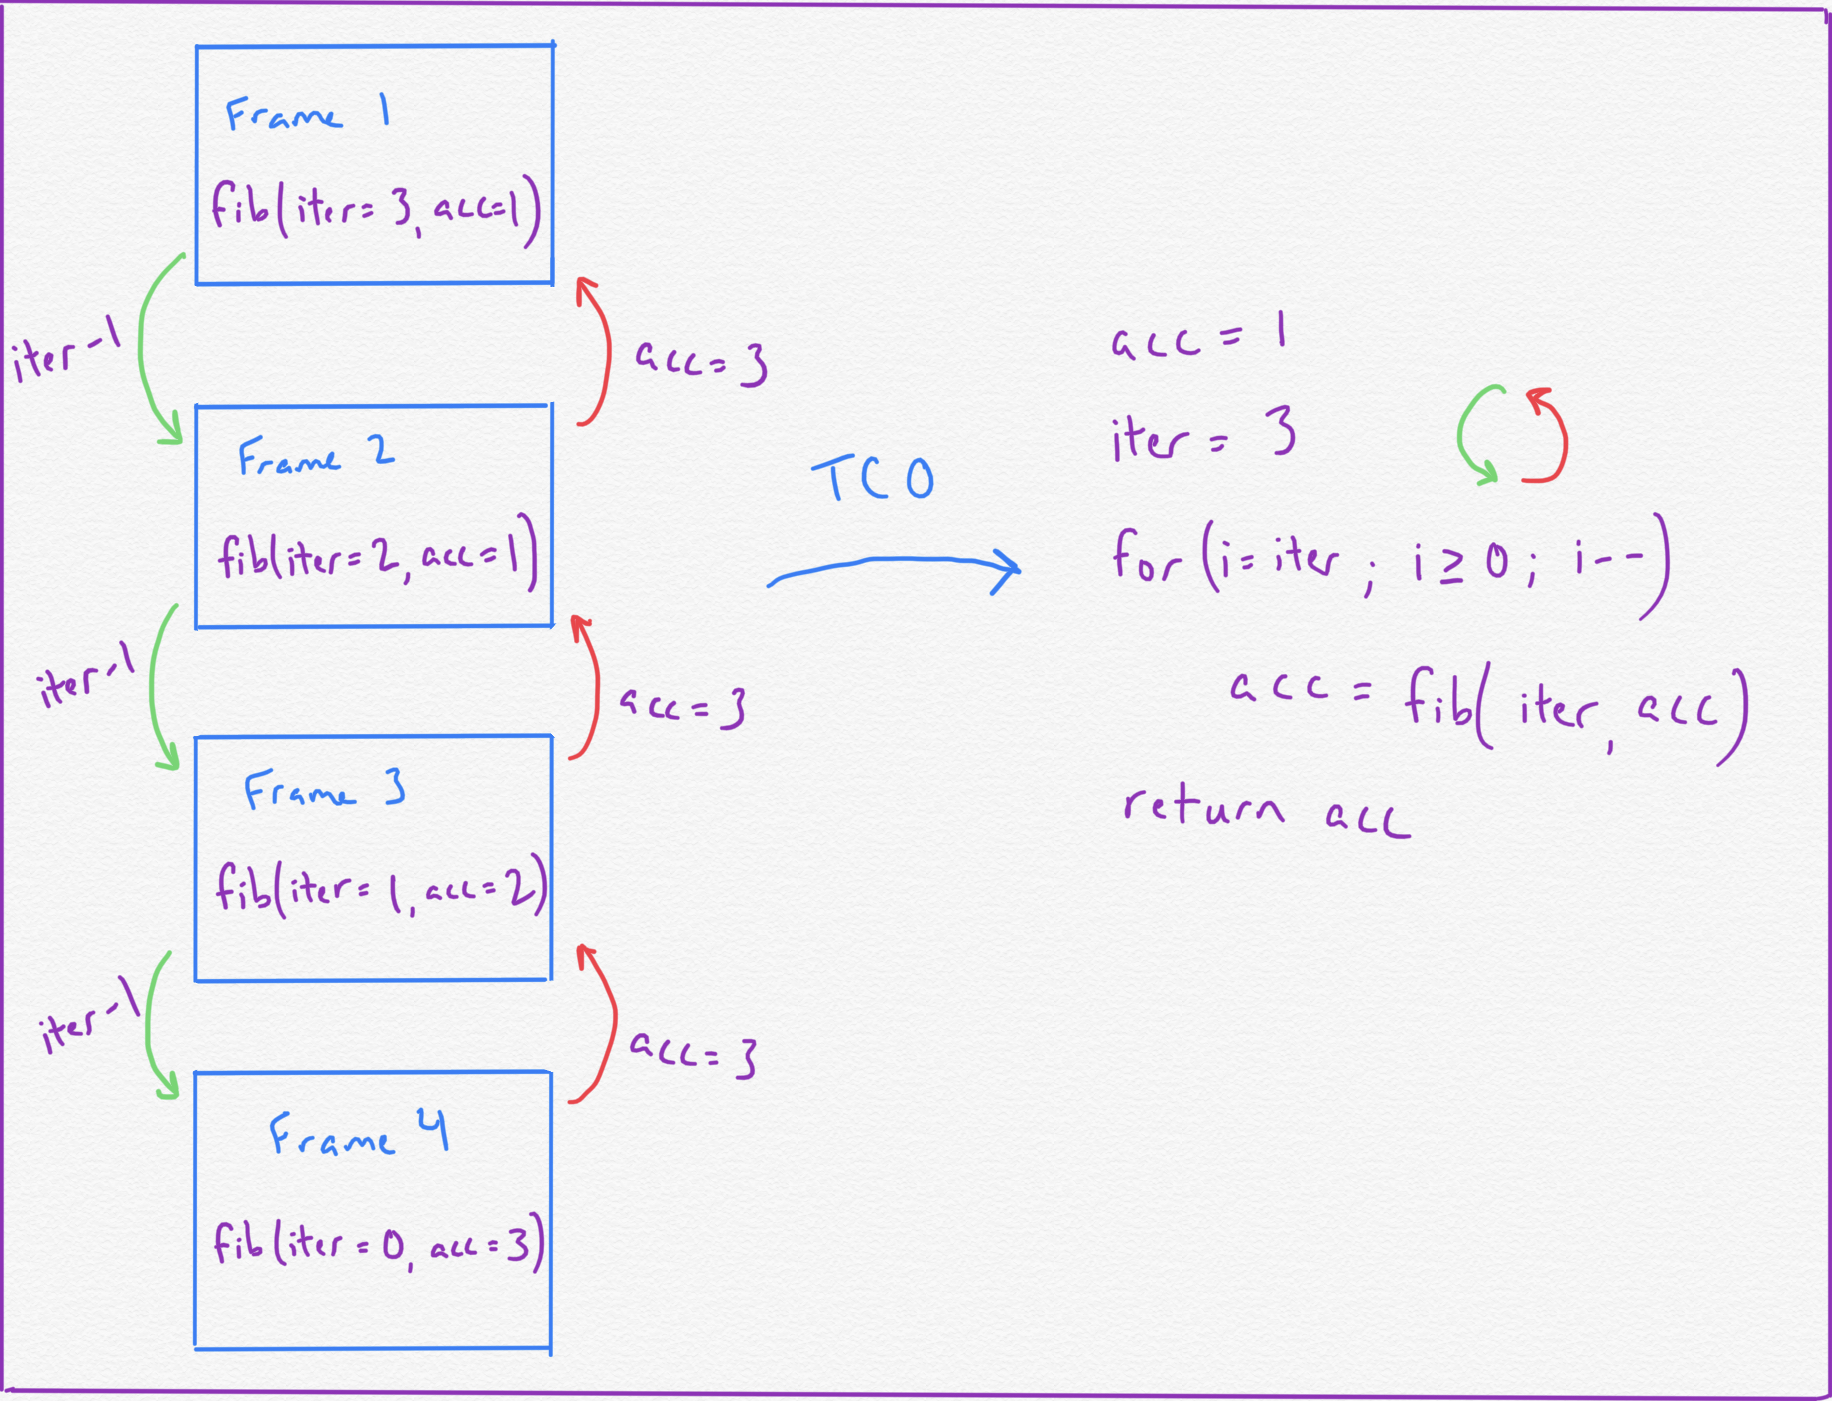 Frame 1
fib(iter=3, acc=1)
iter-1
acc=3
Frame 2
fib(iter=2, acc=1)
iter-1
acc=3
Frame 3
fib(iter=1, acc=2)
iter-1
acc=3
Frame 4
fib(iter=0, acc=3)
TCO
acc = 1
iter = 3
for(i=iter; i≥0; i--)
acc = fib(iter, acc)
return acc